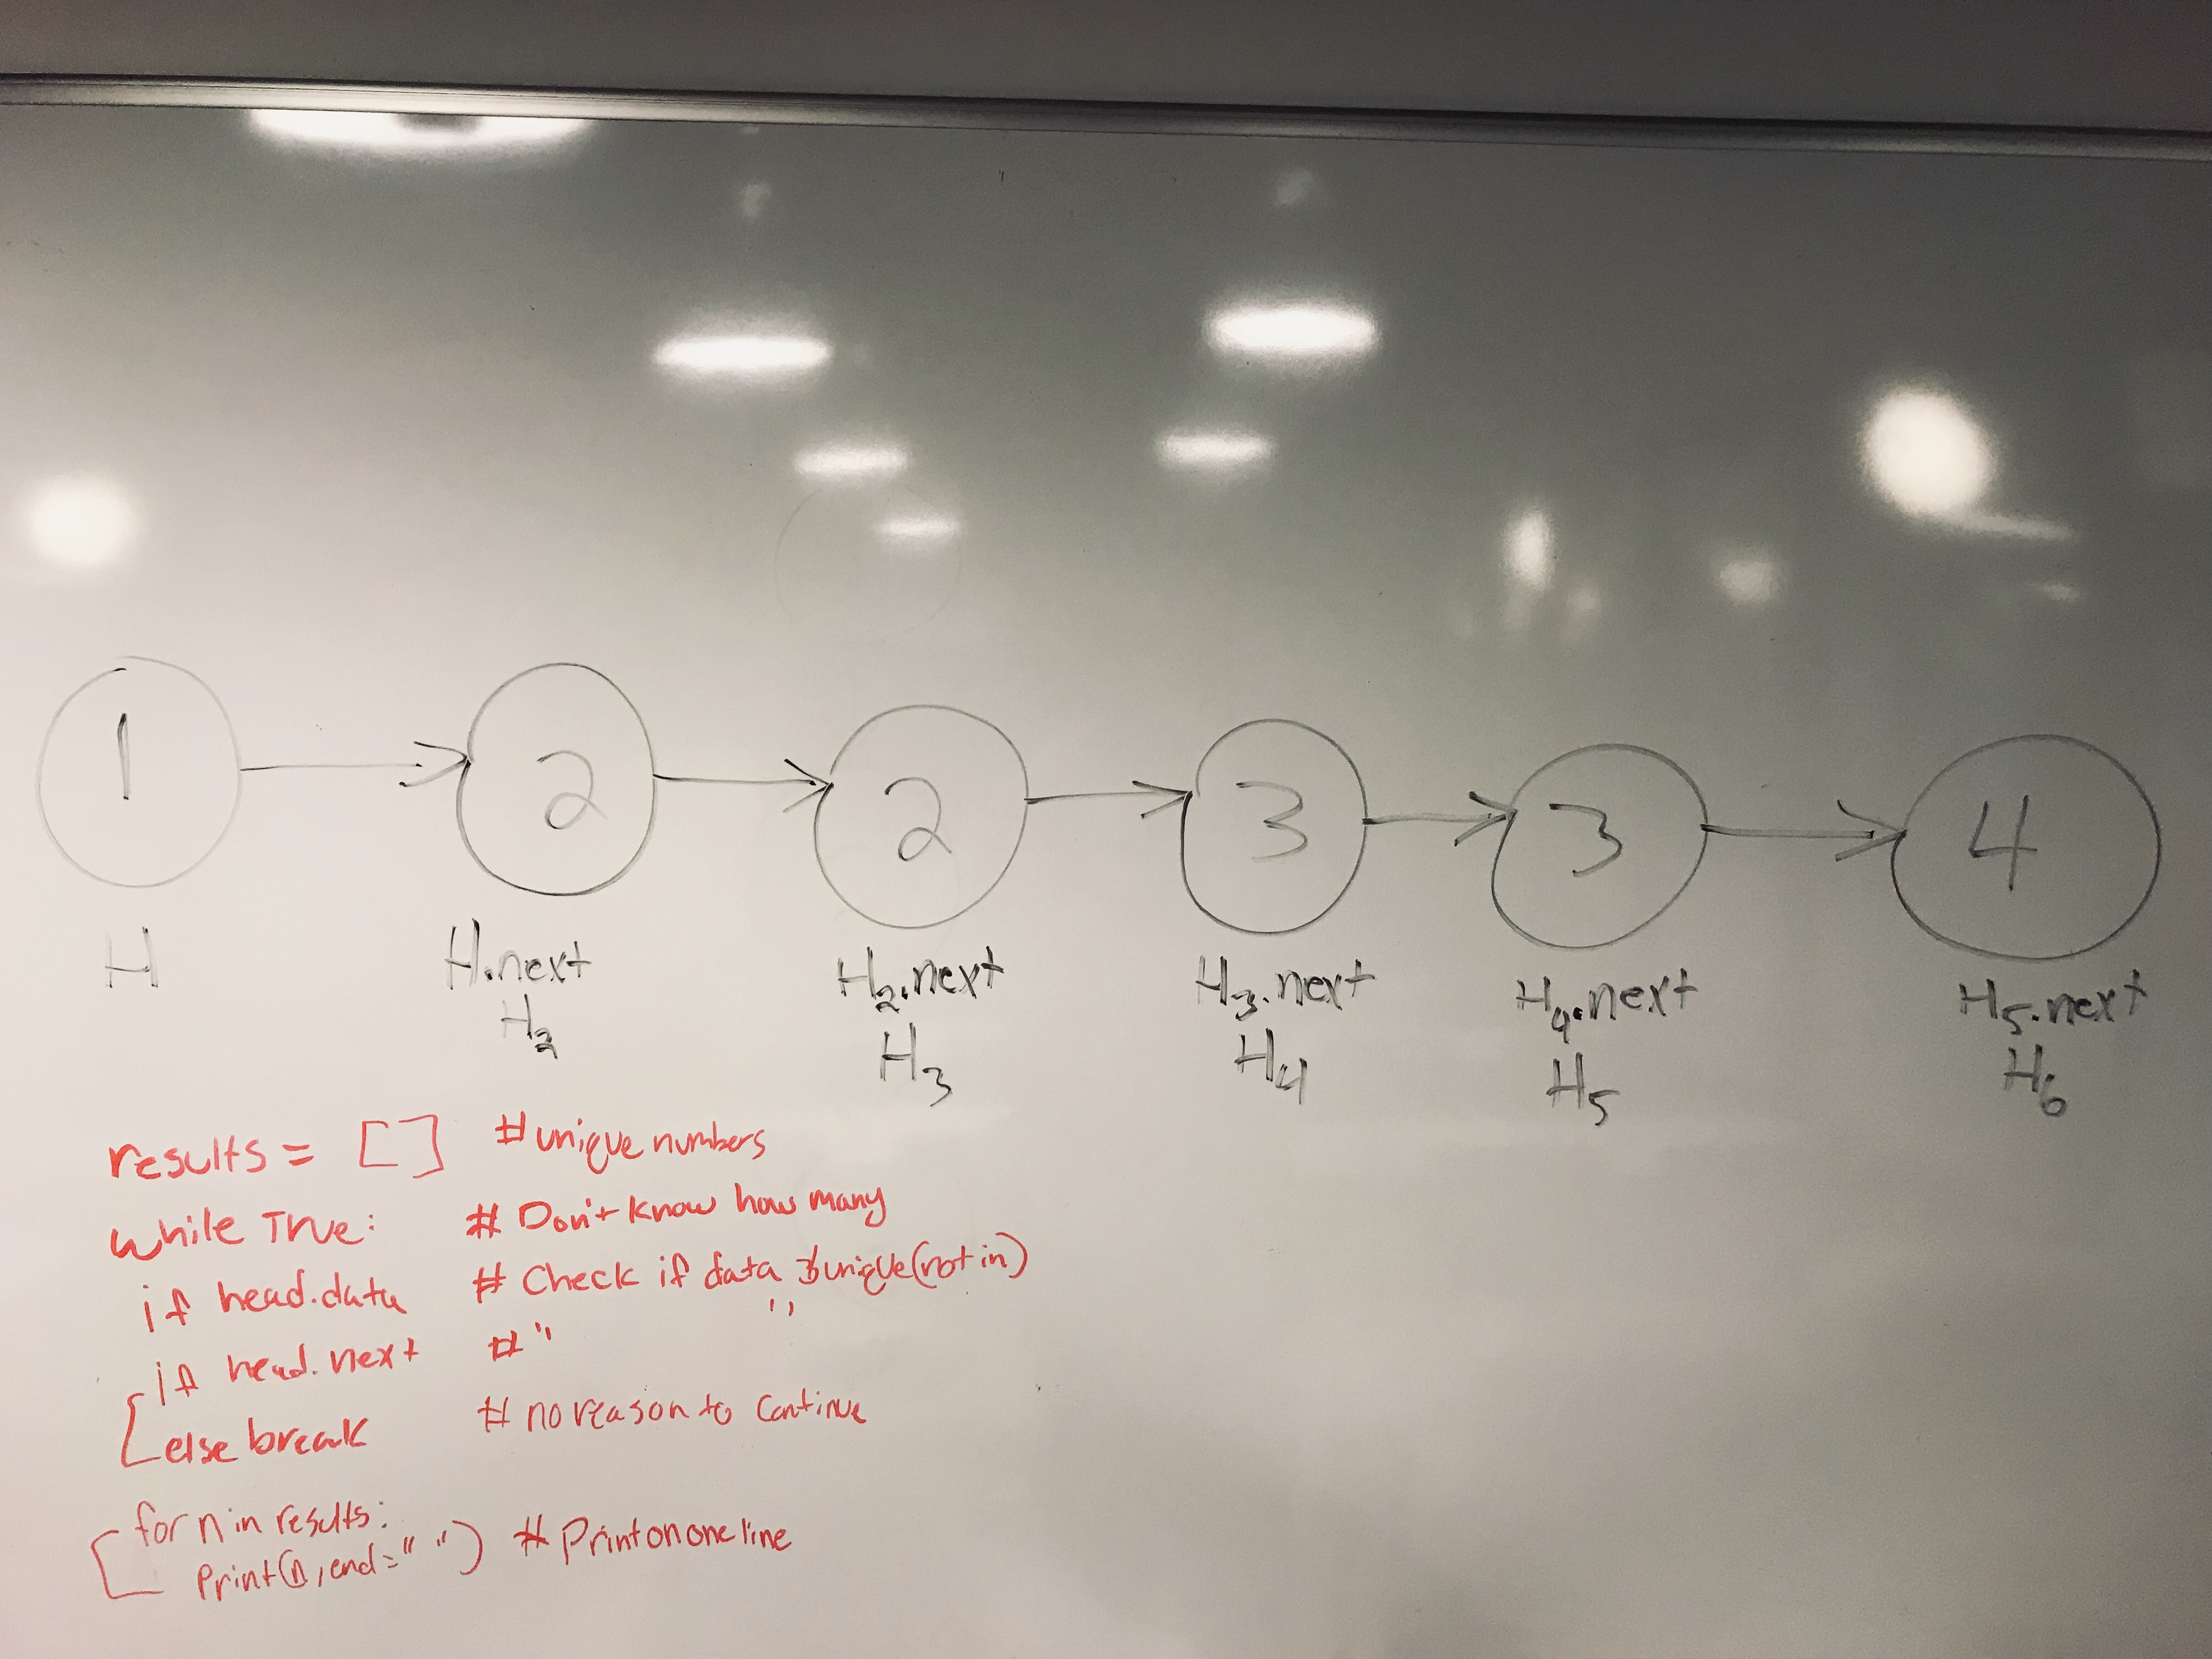 1 2 2 3 3 4
H H.next H2.next H3.next H4.next H5.next
H2 H3 H4 H5 H6
results = [] # unique numbers
while True: # Don't know how many
if head.data # Check if data unique (not in)
if head.next # " "
else break # no reason to continue
for n in results:
print(n, end=" ") # Print on one line